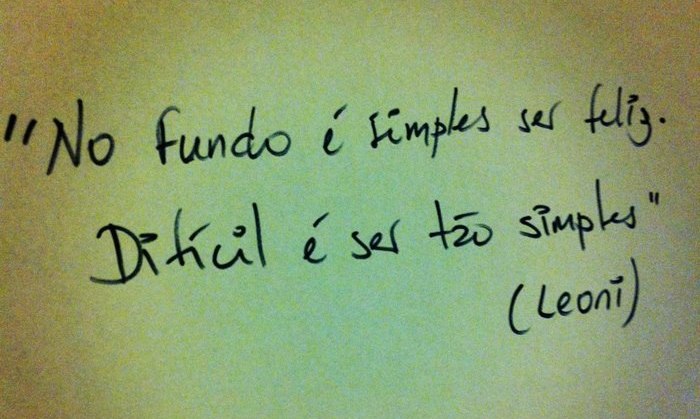 "No fundo é simples ser feliz.
Difícil é ser tão simples"
(Leoni)